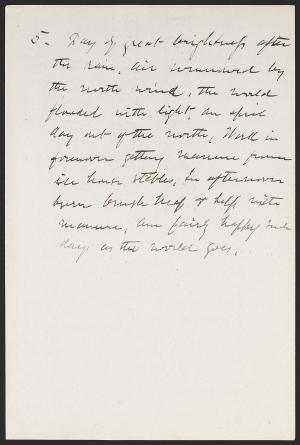 5. Day of great brightness after
the rain, air winnowed by
the north wind, the world
flooded with light, an april
day out of the north, Work in
forenoon getting manure from
ice house stables, In afternoon
burn brush heap & help with
manure, am fairly happy such
days as the world goes.